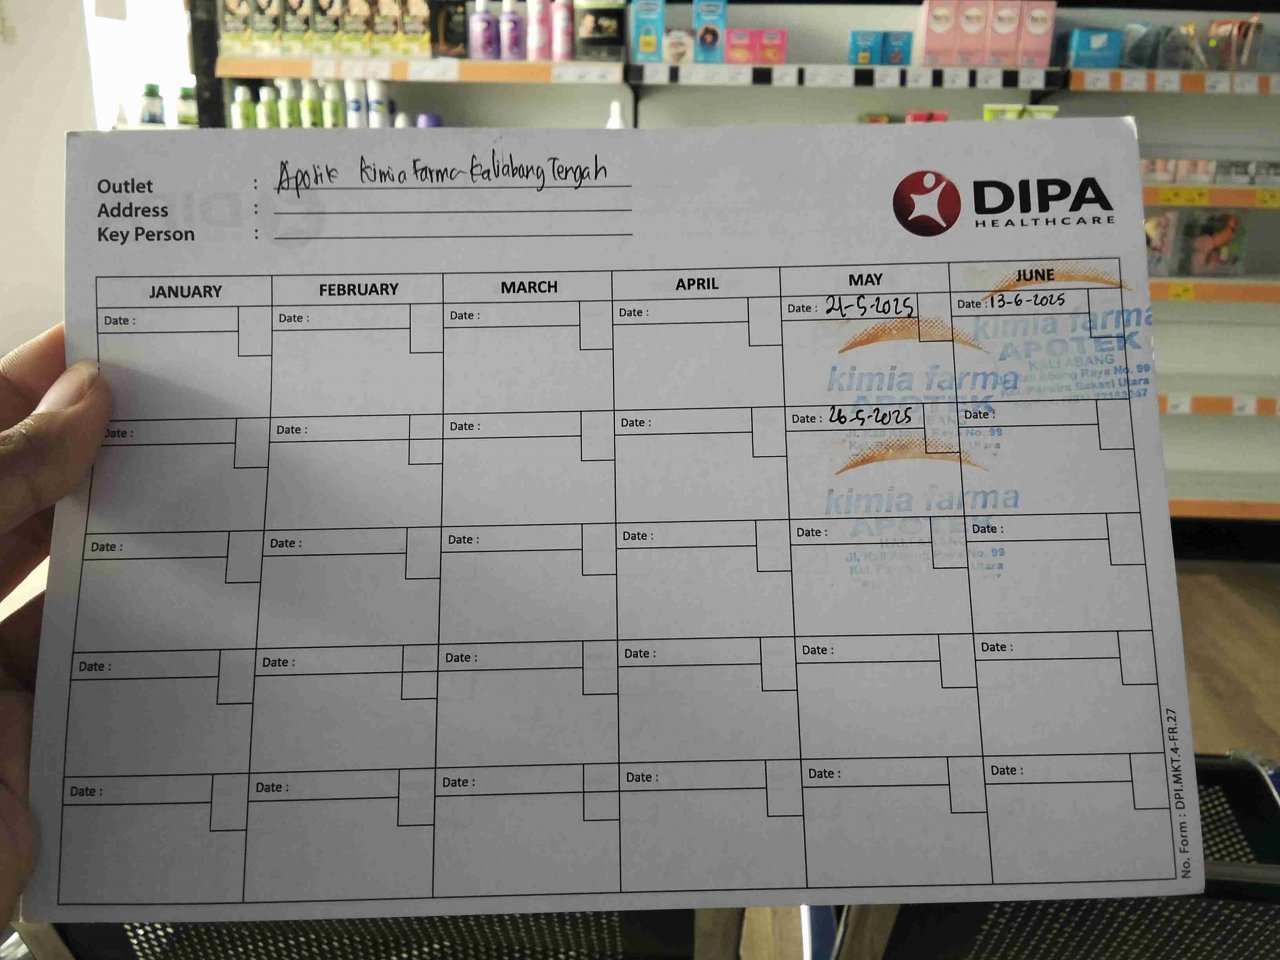 Outlet : Apotik Kimia Farma Kaliabang Tengah
Address :
Key Person :
DIPA
HEALTHCARE
JANUARY FEBRUARY MARCH APRIL MAY JUNE
Date : Date : Date : Date : Date : 21-5-2025 Date : 13-6-2025
kimia farma
APOTEK
KALI ABANG
Raya No. 99
Bekasi Utara
kimia farma
Date : Date : Date : Date : Date : 26-5-2025 Date :
No. 99
kimia farma
APOTEK
Date : Date : Date : Date : Date : Date :
Jl. Kali No. 99
Date : Date : Date : Date : Date : Date :
Date : Date : Date : Date : Date : Date :
No. Form : DPI.MKT.4-FR.27